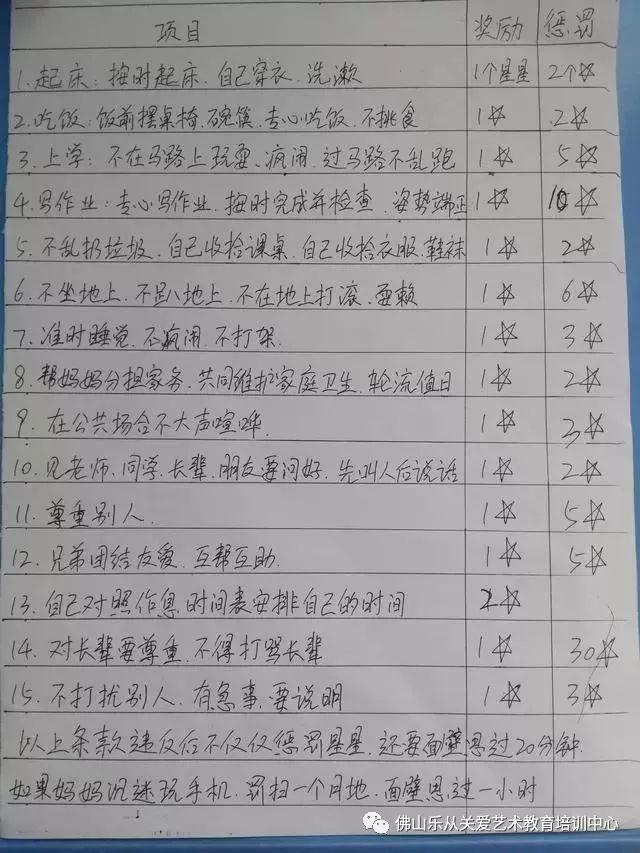 项目 奖励 惩罚
1.起床:按时起床、自己穿衣、洗漱 1个星星 2个☆
2.吃饭:饭前摆桌椅、碗筷、专心吃饭、不挑食 1☆ 2☆
3.上学:不在马路上玩耍、疯闹、过马路不乱跑 1☆ 5☆
4.写作业:专心写作业、按时完成并检查、姿势端正 1☆ 10☆
5.不乱扔垃圾、自己收拾课桌、自己收拾衣服、鞋袜 1☆ 2☆
6.不坐地上、不趴地上、不在地上打滚、耍赖 1☆ 6☆
7.准时睡觉、不疯闹、不打架. 1☆ 3☆
8.帮妈妈分担家务、共同维护家庭卫生、轮流值日 1☆ 2☆
9.在公共场合不大声喧哗. 1☆ 3☆
10.见老师、同学、长辈、朋友要问好、先叫人后说话 1☆ 2☆
11.尊重别人. 1☆ 5☆
12.兄弟团结友爱、互帮互助. 1☆ 5☆
13.自己对照作息时间表安排自己的时间 2☆
14.对长辈要尊重、不得打骂长辈 1☆ 30☆
15.不打扰别人、有急事、要说明 1☆ 3☆
以上条款违反后不仅仅惩罚星星、还要面壁思过20分钟.
如果妈妈沉迷玩手机、罚扫一个月地、面壁思过一小时
佛山乐从关爱艺术教育培训中心